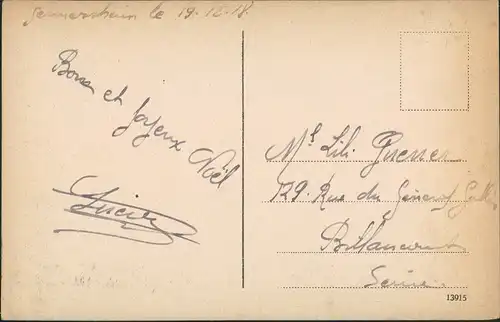 Germersheim le 19-12-18.
Bon et Joyeux Noël
Lucien
Mlle Lili
129. Rue du Général
Billancourt
Seine
13915